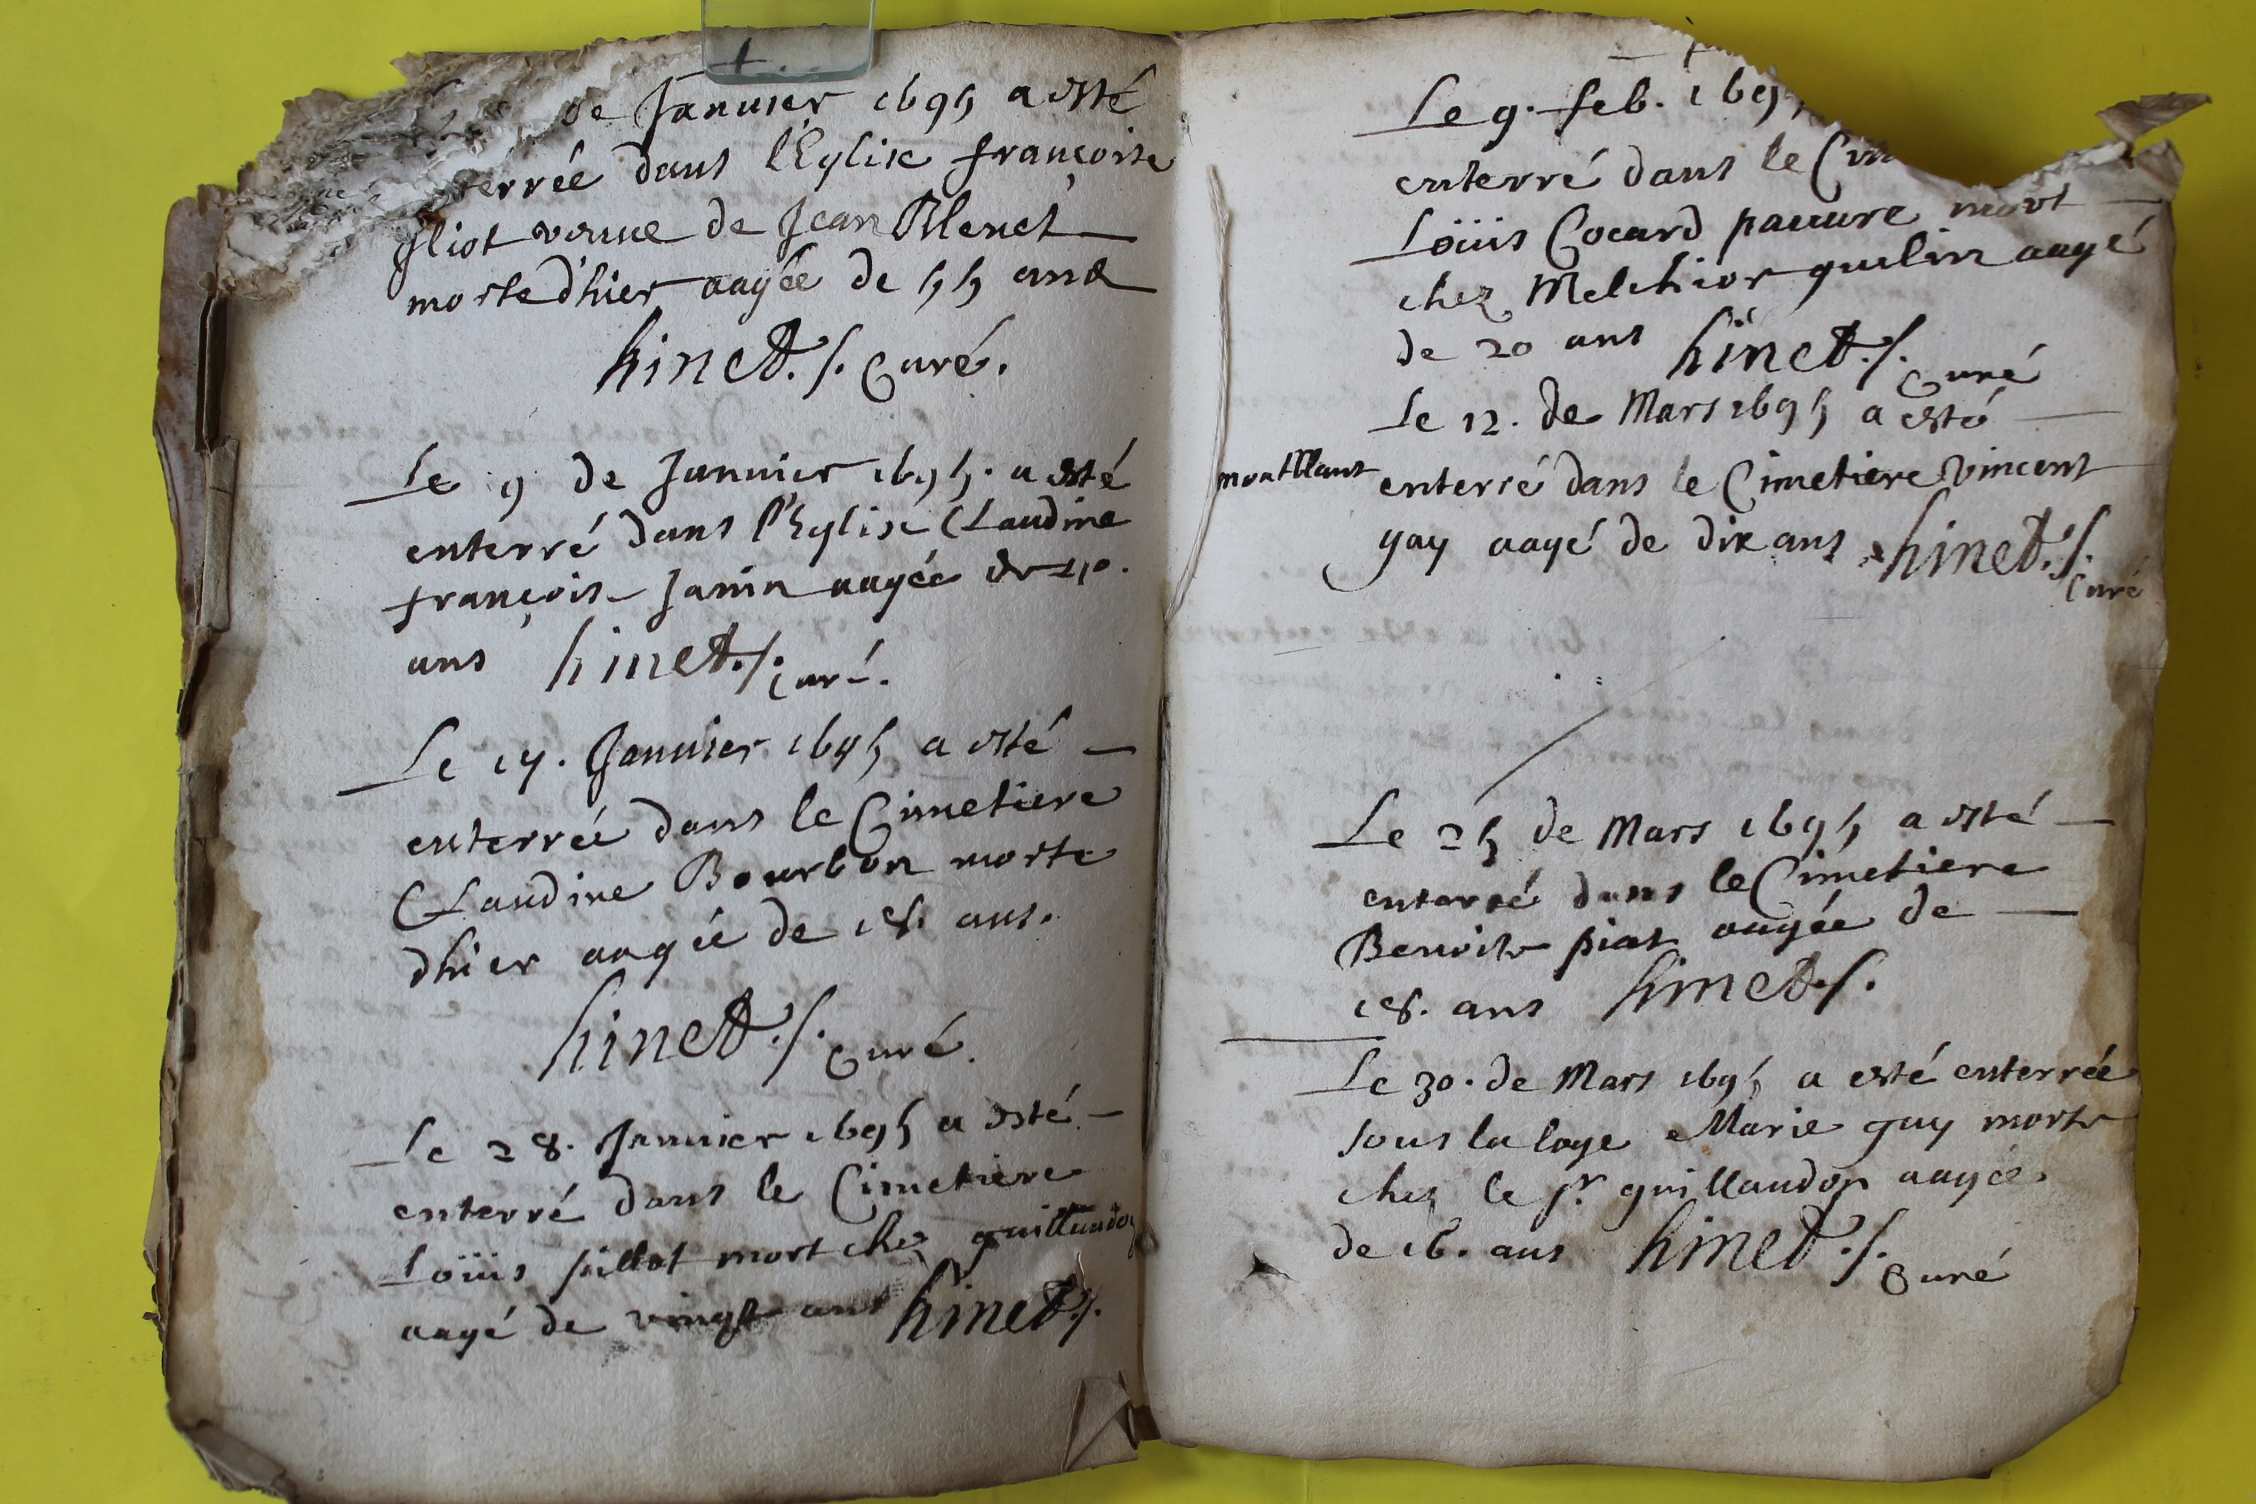 de Januier 1695 a esté
terrée dans l'Eglise françoise
gliot veuue de Jean Blenet
morte d'hier aagée de 55 ans
hinet.s. Curé.
Le 9 de Januier 1695. a esté
enterré dans l'Eglise Claudine
françoise Janin aagée de 40.
ans hinet.s. Curé.
Le 14. Januier 1695 a esté
enterrée dans le Cimetiere
Claudine Bourbon morte
dhier aagée de 18. ans.
hinet.s. Curé.
Le 28. Januier 1695 a esté
enterré dans le Cimetiere
Loüis pillot mort chez guillaudo
aagé de vingt ans hinet.s.
Le 9. feb. 1695
enterré dans le Cim
Loüis Cocard pauure mort
chez Melchior aagé
de 20 ans hinet.s. Curé
Le 12. de Mars 1695 a esté
montblant enterré dans le Cimetiere Vincent
gay aagé de dix ans hinet.s. Curé
Le 25 de Mars 1695 a esté
enterré dans le Cimetiere
Benoite piat aagée de
18. ans hinet.s.
Le 30. de Mars 1695 a esté enterrée
sous la loge Marie guy morte
chez le sr guillaudon aagée
de 16. ans hinet.s. Curé